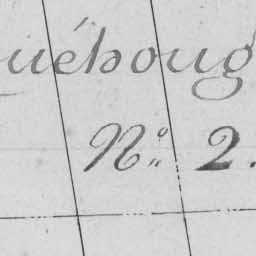 uéhoug
N.º 2.